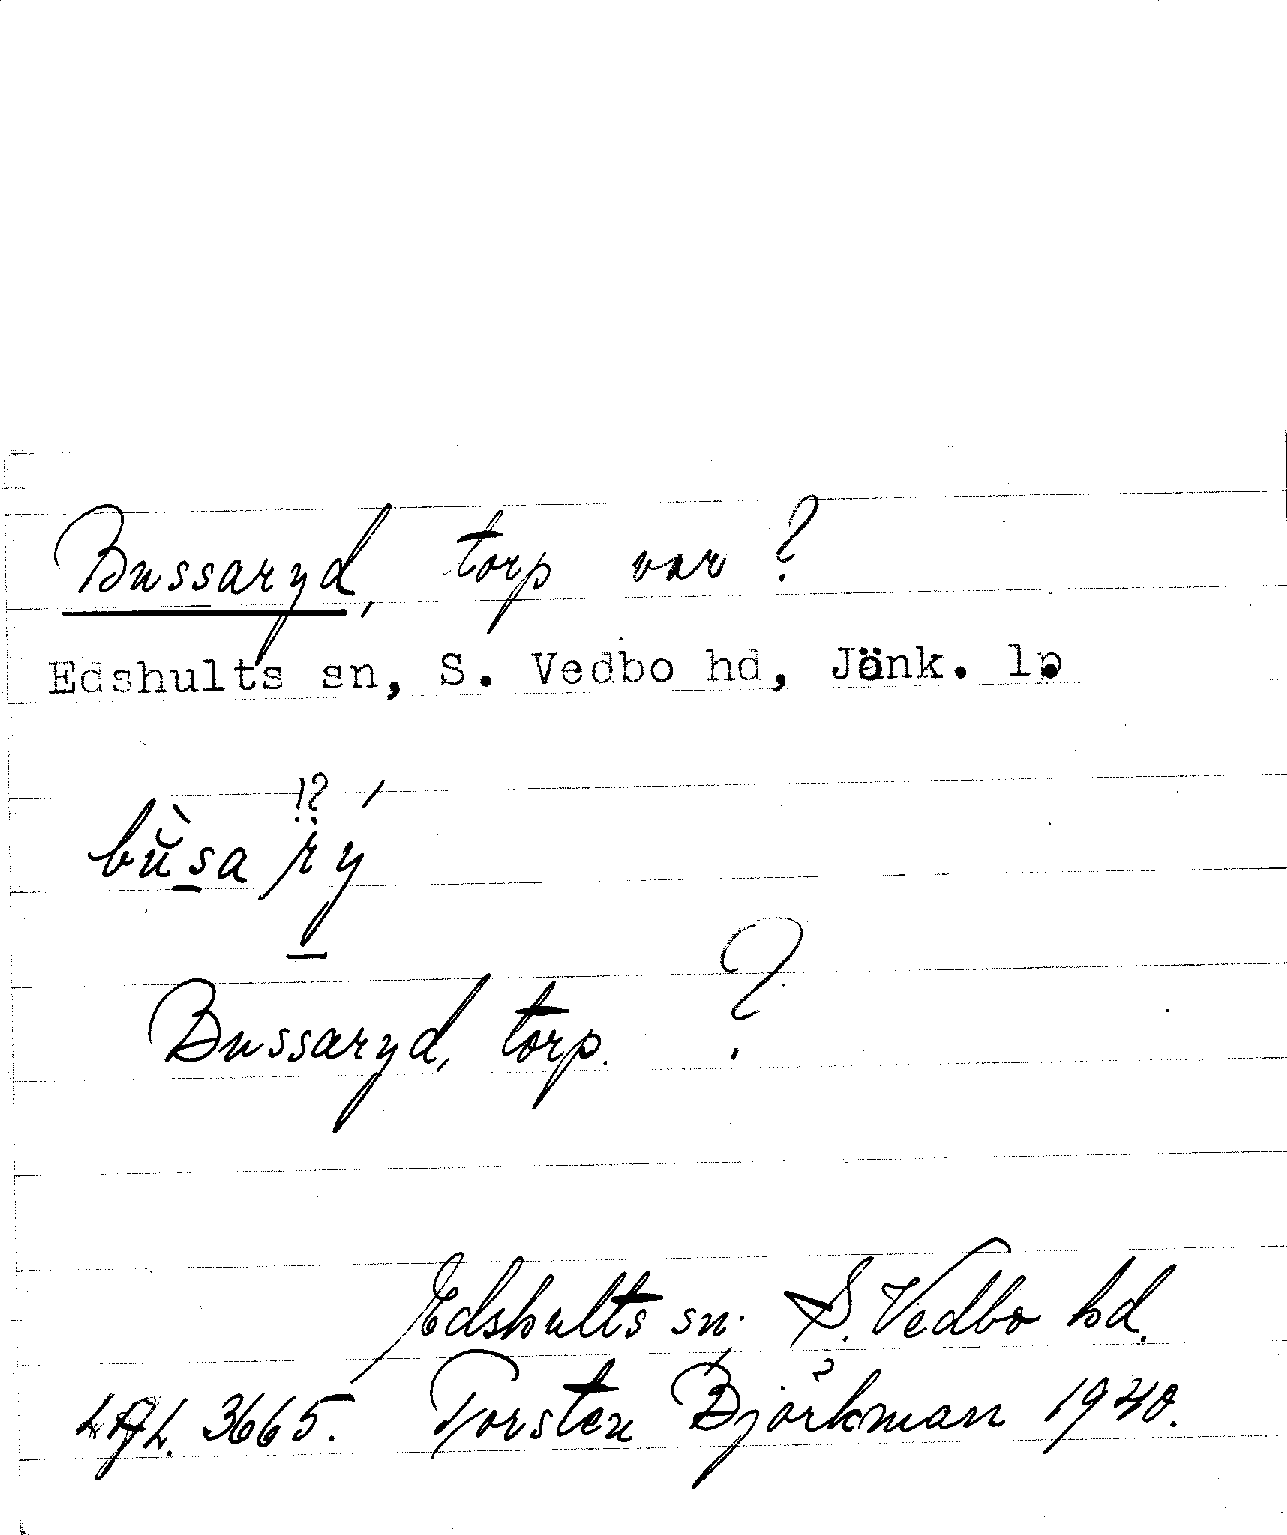 Bussaryd, torp var?
Edshults sn, S. Vedbo hd, Jönk. l.
!? 
bŭ̀sa rý
Bussaryd, torp. ?
Edshults sn. S. Vedbo hd.
3665. Torsten Björkman 1940.